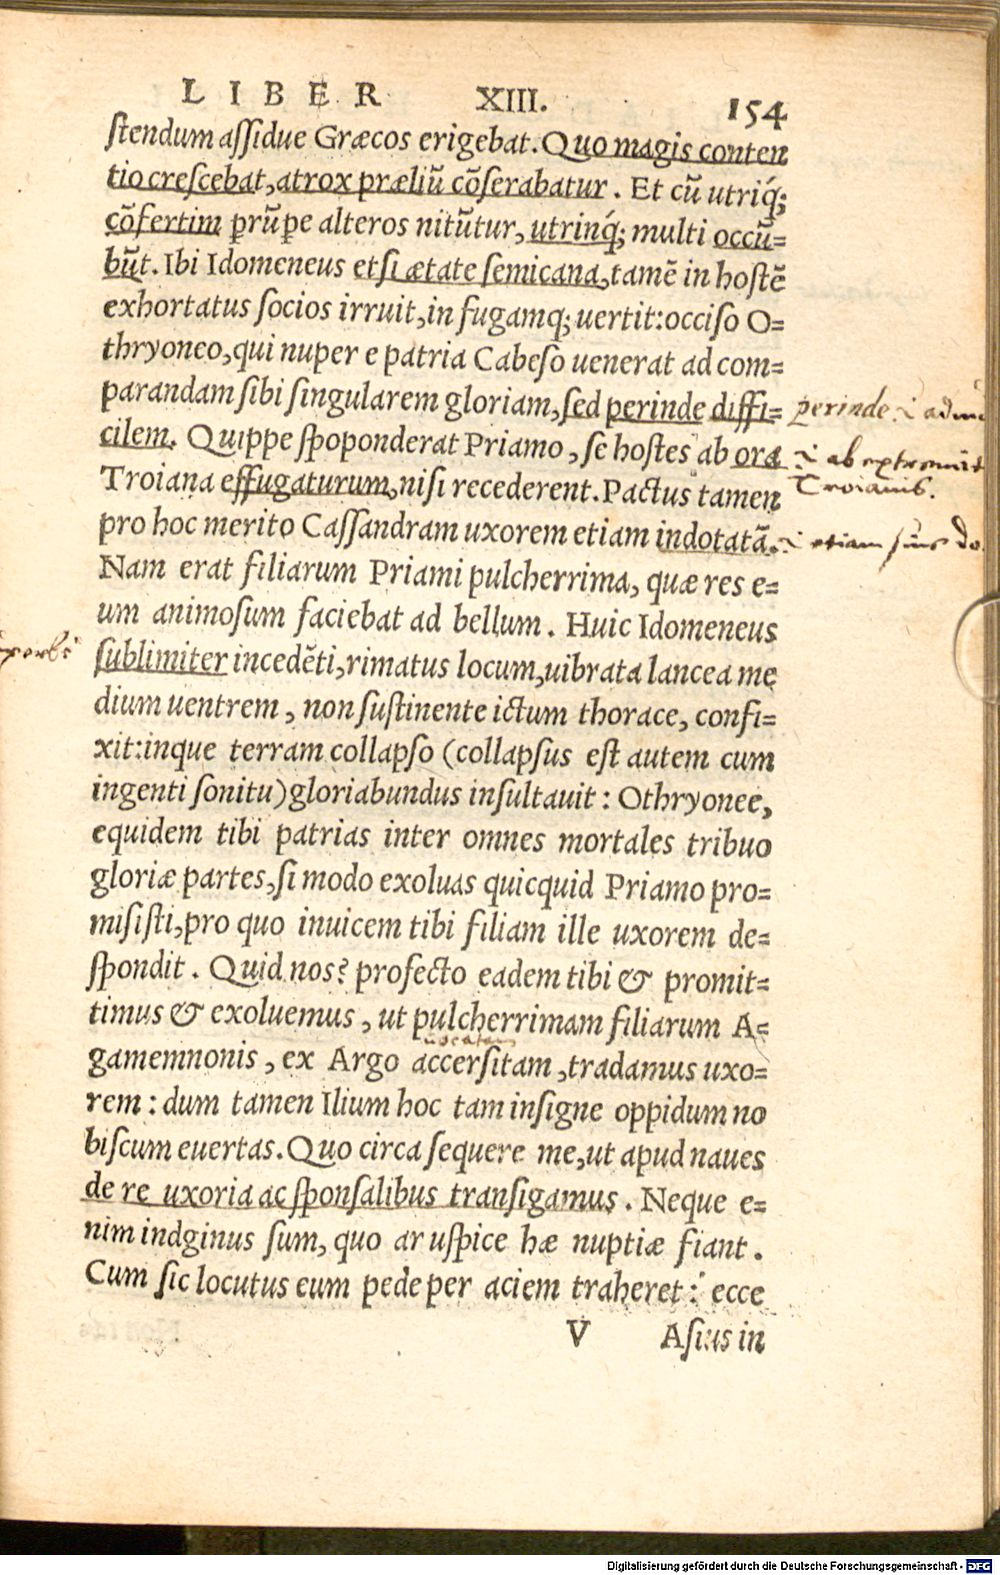 LIBER XIII. 154
ſtendum aſſidue Græcos erigebat. Quo magis conten
tio creſcebat, atrox præliũ cõſerabatur. Et cũ utriq́;
cõfertim ꝓrũꝑe alteros nitũtur, utrinq́; multi occũ=
bũt. Ibi Idomeneus etſi ætate ſemicana, tamẽ in hoſtẽ
exhortatus ſocios irruit, in fugamq; uertit: occiſo O=
thryoneo, qui nuper e patria Cabeſo uenerat ad com=
parandam ſibi ſingularem gloriam, ſed perinde diffi= perinde
cilem. Quippe ſpoponderat Priamo, ſe hoſtes ab ora ab
Troiana effugaturum, niſi recederent. Pactus tamen Troianis.
pro hoc merito Caſſandram uxorem etiam indotatã. etiam
Nam erat filiarum Priami pulcherrima, quæ res e=
um animoſum faciebat ad bellum. Huic Idomeneus
ſublimiter incedẽti, rimatus locum, uibrata lancea me
dium uentrem, non ſuſtinente ictum thorace, confi=
xit: inque terram collapſo (collapſus eſt autem cum
ingenti ſonitu) gloriabundus inſultauit: Othryonee,
equidem tibi patrias inter omnes mortales tribuo
gloriæ partes, ſi modo exoluas quicquid Priamo pro=
miſiſti, pro quo inuicem tibi filiam ille uxorem de=
ſpondit. Quid nos? profecto eadem tibi & promit=
timus & exoluemus, ut pulcherrimam filiarum A=
uocatam
gamemnonis, ex Argo accerſitam, tradamus uxo=
rem: dum tamen Ilium hoc tam inſigne oppidum no
biſcum euertas. Quo circa ſequere me, ut apud naues
de re uxoria ac ſponſalibus tranſigamus. Neque e=
nim indginus ſum, quo aruſpice hæ nuptiæ fiant.
Cum ſic locutus eum pede per aciem traheret: ecce
V Aſius in
Digitalisierung gefördert durch die Deutsche Forschungsgemeinschaft - DFG